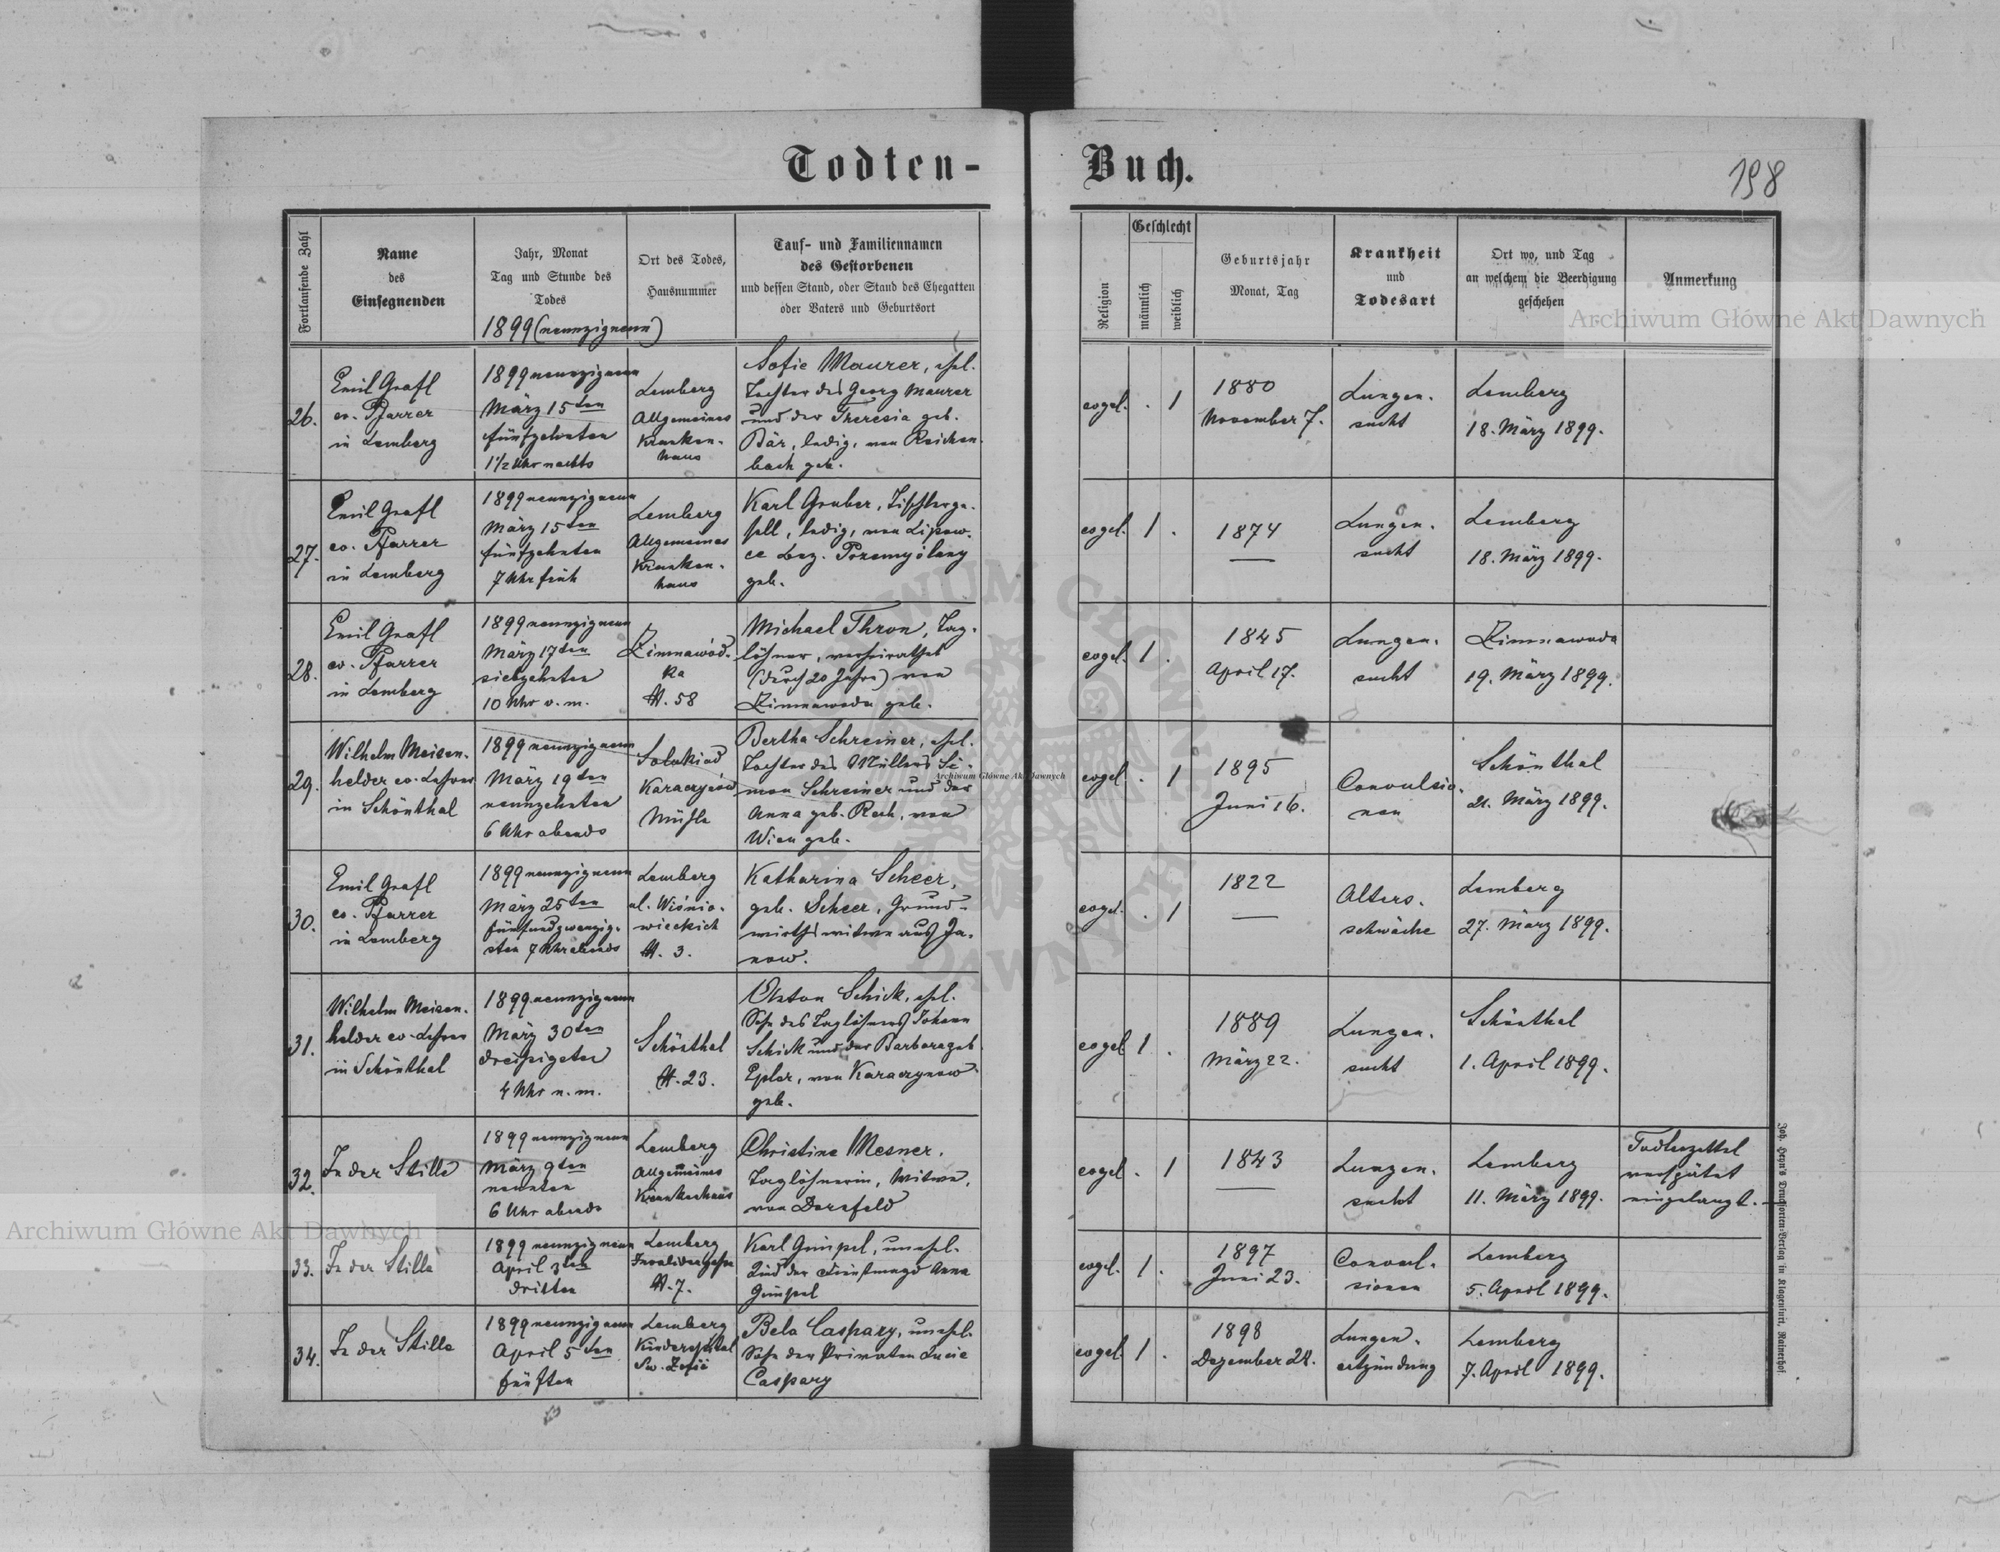 Todten-
Buch.
198
Fortlaufende Zahl
Name
des
Einsegnenden
Jahr, Monat
Tag und Stunde des
Todes
1899 (neunzigneun)
Ort des Todes,
Hausnummer
Tauf- und Familiennamen
des Gestorbenen
und dessen Stand, oder Stand des Ehegatten
oder Vaters und Geburtsort
Religion
Geschlecht
männlich
weiblich
Geburtsjahr
Monat, Tag
Krankheit
und
Todesart
Ort wo, und Tag
an welchem die Beerdigung
geschehen
Anmerkung
26.
Emil Grafl
ev. Pfarrer
in Lemberg
1899 neunzigneun
März 15ten
fünfzehnten
1 1/2 Uhr nachts
Lemberg
Allgemeines
Kranken-
haus
Sofie Maurer, ehel.
Tochter des Georg Maurer
und der Theresia geb.
Bär, ledig, von Reichen-
bach geb.
evgel. . 1
1880
November 7.
Lungen-
sucht
Lemberg
18. März 1899.
27.
Emil Grafl
ev. Pfarrer
in Lemberg
1899 neunzigneun
März 15ten
fünfzehnten
7 Uhr früh
Lemberg
Allgemeines
Kranken-
haus
Karl Gruber, Tischlerge-
sell, ledig, von Lipow-
ce bez. Przemyślany
geb.
evgel. 1 .
1874
—
Lungen-
sucht
Lemberg
18. März 1899.
28.
Emil Grafl
ev. Pfarrer
in Lemberg
1899 neunzigneun
März 17ten
siebzehnten
10 Uhr v. m.
Zimnawód-
ka
N. 58
Michael Thron, Tag-
löhner, verheirathet
(durch 20 Jahre) von
Zimnawoda geb.
evgel. 1 .
1845
April 17.
Lungen-
sucht
Zimnawoda
19. März 1899.
29.
Wilhelm Meisen-
helder ev. Lehrer
in Schönthal
1899 neunzigneun
März 19ten
neunzehnten
6 Uhr abends
Karaczynów
Mühle
Bertha Schreiner, ehel.
Tochter des Müllers Si-
mon Schreiner und der
Anna geb. Rech, von
Wien geb.
evgel . 1
1895
Juni 16.
Convulsio-
nen
Schönthal
21. März 1899.
30.
Emil Grafl
ev. Pfarrer
in Lemberg
1899 neunzigneun
März 25ten
fünfundzwanzig-
sten 7 Uhr abends
Lemberg
ul. Wiśnio-
wieckich
N. 3.
Katharina Scheer,
geb. Scheer, Grund-
wirthswitwe aus Ja-
now.
evgel. . 1
1822
—
Alters-
schwäche
Lemberg
27. März 1899.
31.
Wilhelm Meisen-
helder ev. Lehrer
in Schönthal
1899 neunzigneun
März 30ten
dreissigsten
4 Uhr n. m.
Schönthal
N. 23.
Anton Schick, ehel.
Sohn des Taglöhners Johann
Schick und der Barbara geb.
Epler, von Karaczynow
geb.
evgel 1 .
1889
März 22.
Lungen-
sucht
Schönthal
1. April 1899.
32.
In der Stille
1899 neunzigneun
März 9ten
neunten
6 Uhr abends
Lemberg
Allgemeines
Krankenhaus
Christine Mesner,
Taglöhnerin, Witwe,
von Dornfeld
evgel . 1
1843
—
Lungen-
sucht
Lemberg
11. März 1899.
Todtenzettel
verspätet
eingelangt.
33.
In der Stille
1899 neunzigneun
April 3ten
dritten
Lemberg
Invalidengasse
N. 7.
Karl Gimpel, unehel.
Kind der Dienstmagd Anna
Gimpel
evgel. 1 .
1897
Juni 23.
Convul-
sionen
Lemberg
5. April 1899.
34.
In der Stille
1899 neunzigneun
April 5ten
fünften
Lemberg
Kinderspital
Sw. Zofii
Bela Caspary, unehel.
Sohn der Privaten Lucie
Caspary
evgel. 1 .
1898
Dezember 28.
Lungen-
entzündung
Lemberg
7. April 1899.
Joh. Heyn's Drucksorten-Verlag in Klagenfurt, Rainerhof.
Archiwum Główne Akt Dawnych
Archiwum Główne Akt Dawnych
Archiwum Główne Akt Dawnych